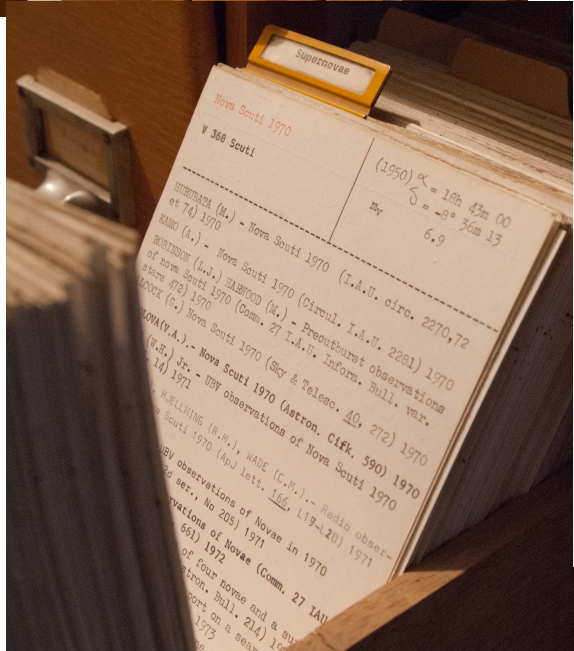 Supernovae
Nova Scuti 1970
V 368 Scuti
(1950) α = 18h 43m 00
δ = -8° 36m 13
mv 6.9
HURUHATA (M.) - Nova Scuti 1970 (I.A.U. circ. 2270,72
et 74) 1970
KANO (A.) - Nova Scuti 1970 (Circul. I.A.U. 2281) 1970
ROBINSON (L.J.) HARWOOD (M.) - Preoutburst observations
of nova Scuti 1970 (Comm. 27 I.A.U. Inform. Bull. var.
stars 472) 1970
LCOCK (G.) Nova Scuti 1970 (Sky & Telesc. 40, 272) 1970
LOVA(V.A.).- Nova Scuti 1970 (Astron. Cifk. 590) 1970
(W.H.) Jr.- UBV observations of Nova Scuti 1970
14) 1971
HJELLMING (R.M.), WADE (C.M.).- Radio obser-
Scuti 1970 (ApJ lett. 166, L19-L20) 1971
UBV observations of Novae in 1970
2d ser., No 205) 1971
rvations of Novae (Comm. 27 IAU
661) 1972
of four novae and a su
tron. Bull. 214)
ort on a sear
1973